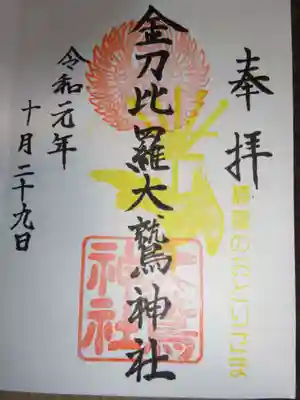 奉拝
金刀比羅大鷲神社
令和元年
十月二十九日